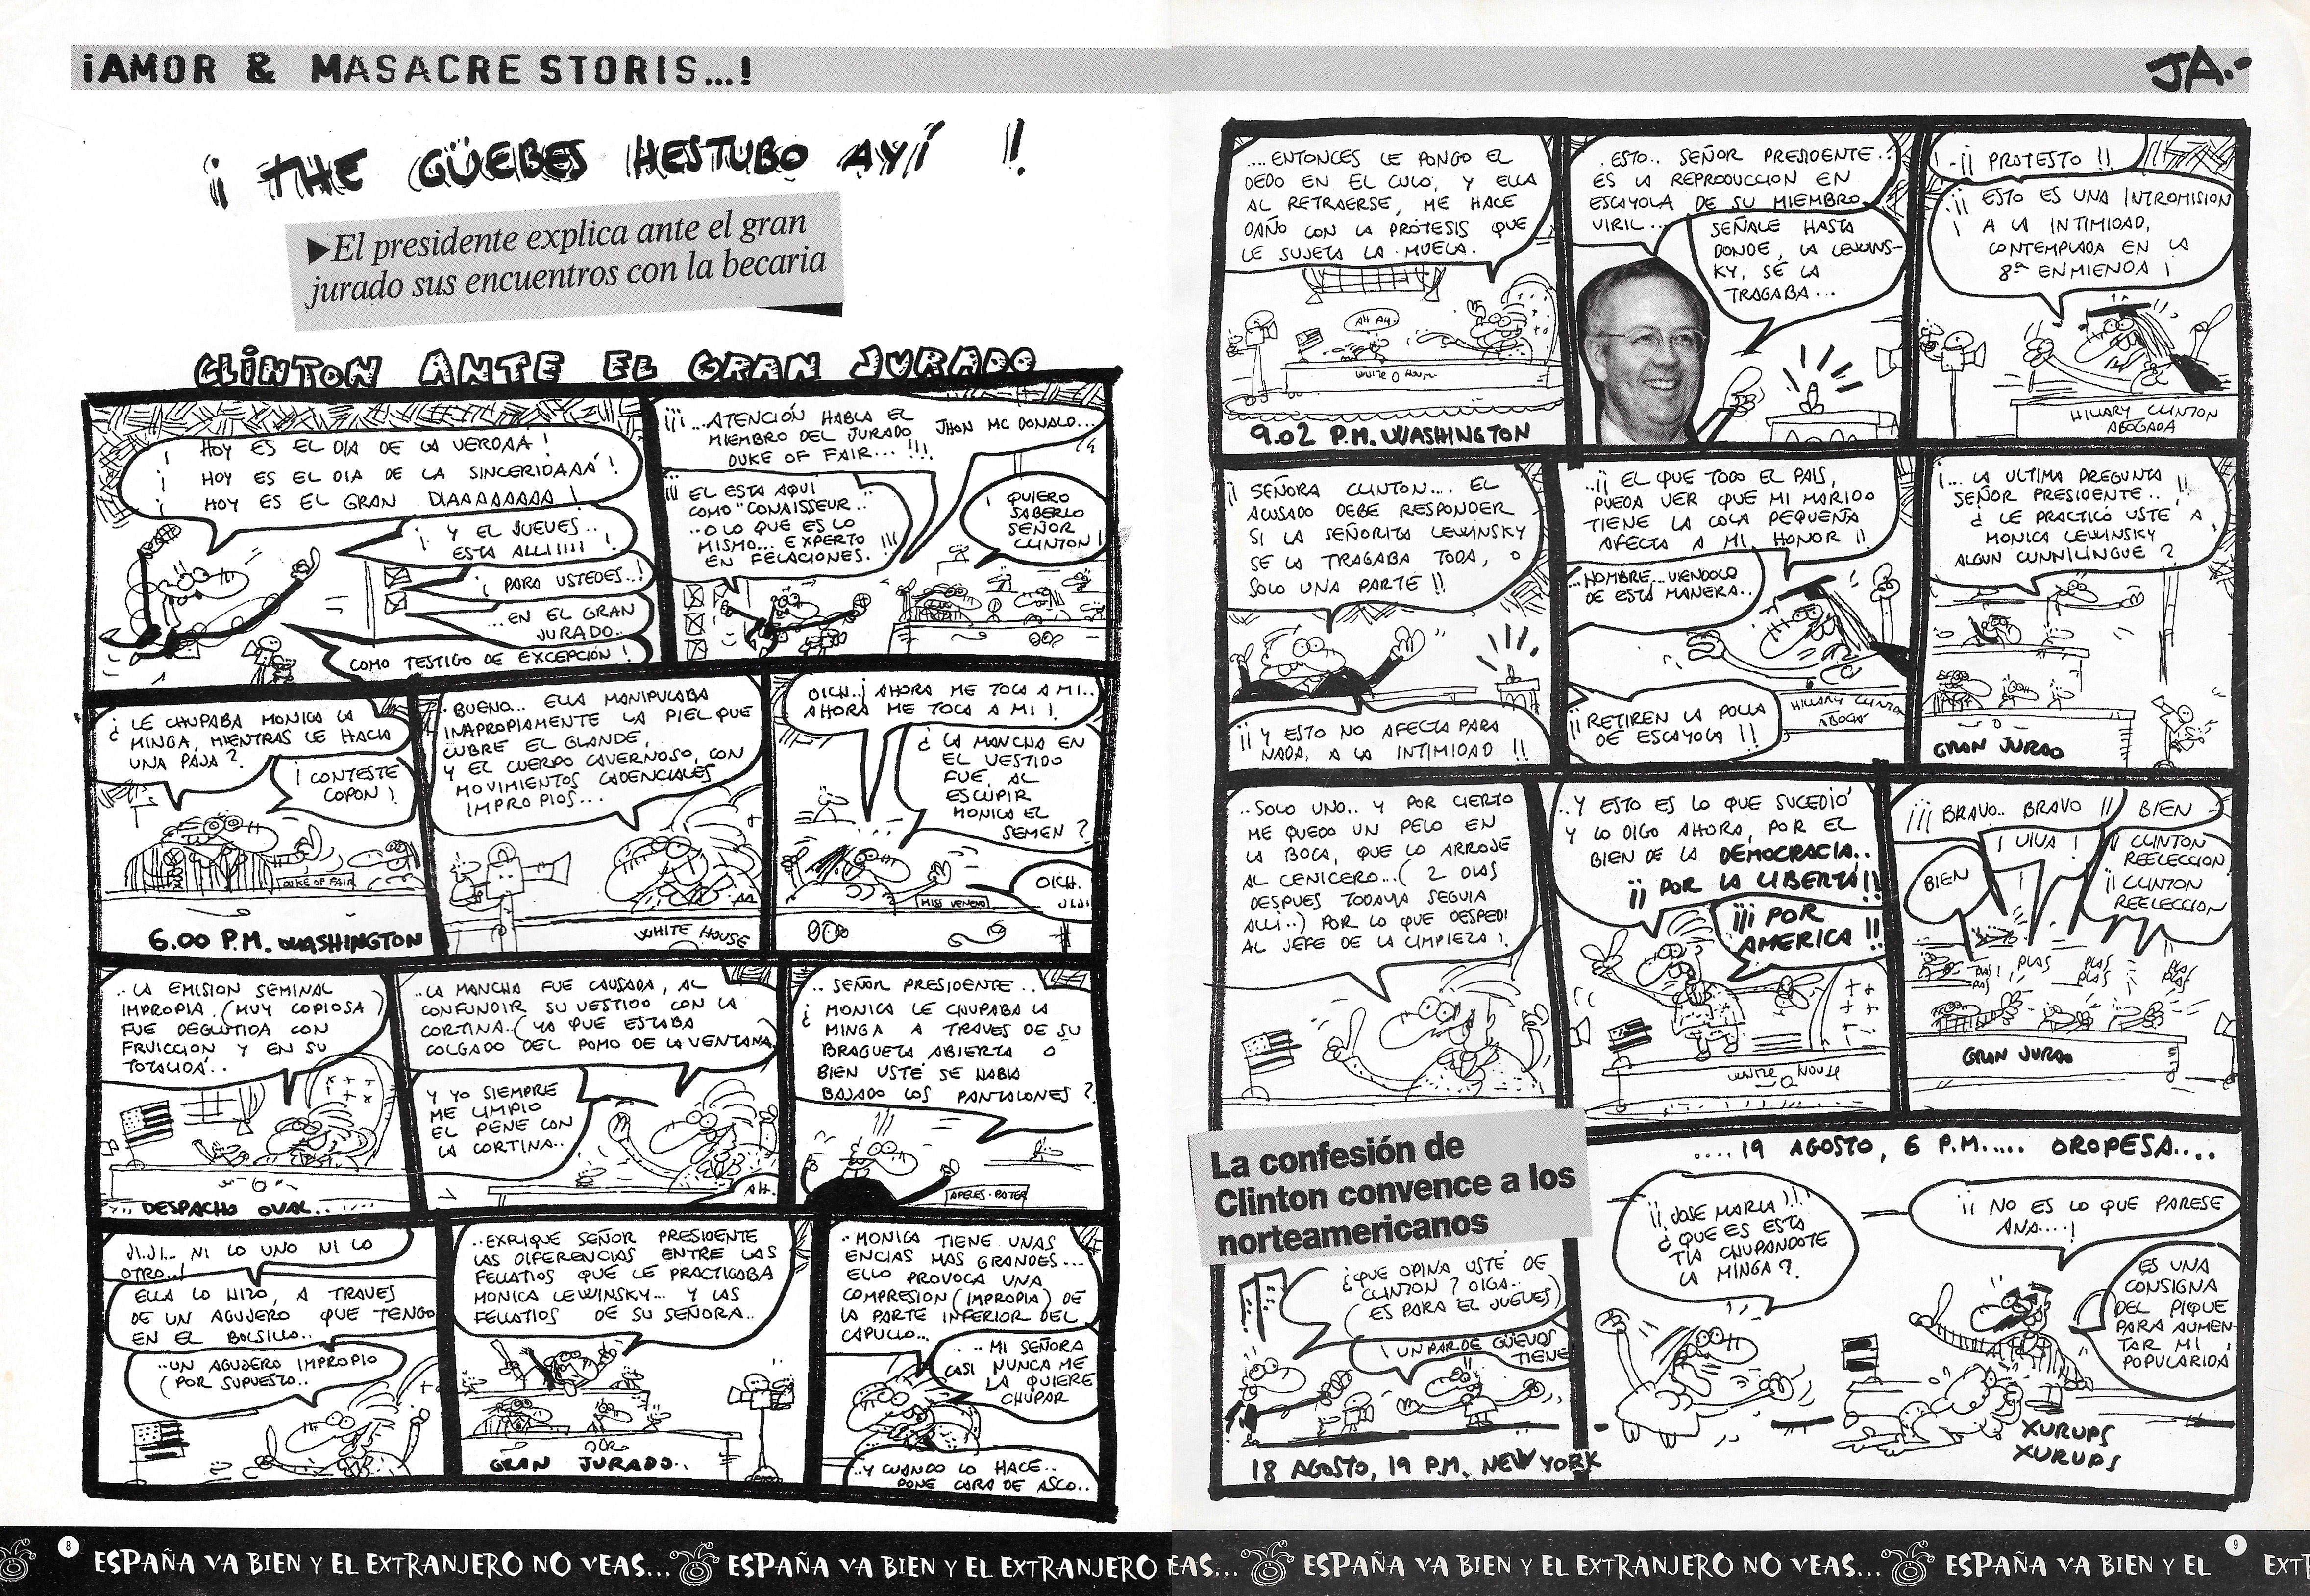 ¡AMOR & MASACRE STORIS...!
JA.-
¡ THE GÜEBES HESTUBO AYÍ !
▶El presidente explica ante el gran
jurado sus encuentros con la becaria
CLINTON ANTE EL GRAN JURADO
¡ HOY ES EL DIA DE LA VERDAA !
¡ HOY ES EL DIA DE LA SINCERIDAAA !
¡ HOY ES EL GRAN DIAAAAAAAA !
¡ Y EL JUEVES..
ESTA ALLIIIII !
¡ PARA USTEDES..!
...EN EL GRAN
JURADO..
COMO TESTIGO DE EXCEPCIÓN !
¡¡¡...ATENCIÓN HABLA EL
MIEMBRO DEL JURADO JHON MC DONALD...
DUKE OF FAIR... !!!
¡¡¡ EL ESTA AQUI
COMO "CONAISSEUR..
..O LO QUE ES LO
MISMO... EXPERTO
EN FELACIONES. !!!
¡ QUIERO
SABERLO
SEÑOR
CLINTON !
¿ LE CHUPABA MONICA LA
MINGA, MIENTRAS LE HACIA
UNA PAJA ?
¡ CONTESTE
COPON !
DUKE OF FAIR
6.00 P.M. WASHINGTON
. BUENO... ELLA MANIPULABA
INAPROPIAMENTE LA PIEL QUE
CUBRE EL GLANDE,
Y EL CUERPO CAVERNOSO, CON
MOVIMIENTOS CADENCIALES
IMPROPIOS...
WHITE HOUSE
OICH..¡ AHORA ME TOCA A MI..
AHORA ME TOCA A MI !
¿ LA MANCHA EN
EL VESTIDO
FUE, AL
ESCUPIR
MONICA EL
SEMEN ?
OICH.
MISS VENENO
.. LA EMISION SEMINAL
IMPROPIA (MUY COPIOSA)
FUE DEGLUTIDA CON
FRUICCION Y EN SU
TOTALIDÁ..
DESPACHO OVAL..
..LA MANCHA FUE CAUSADA, AL
CONFUNDIR SU VESTIDO CON LA
CORTINA..(YA QUE ESTABA
COLGADO DEL POMO DE LA VENTANA
Y YO SIEMPRE
ME LIMPIO
EL PENE CON
LA CORTINA..
AH.
.. SEÑOR PRESIDENTE..
¿ MONICA LE CHUPABA LA
MINGA A TRAVES DE SU
BRAGUETA ABIERTA O
BIEN USTÉ SE HABIA
BAJADO LOS PANTALONES ?
APELES-PATER
JI.JI... NI LO UNO NI LO
OTRO..!
ELLA LO HIZO, A TRAVES
DE UN AGUJERO QUE TENGO
EN EL BOLSILLO..
..UN AGUJERO IMPROPIO
(POR SUPUESTO..
..EXPLIQUE SEÑOR PRESIDENTE
LAS DIFERENCIAS ENTRE LAS
FELLATIOS QUE LE PRACTICABA
MONICA LEWINSKY... Y LAS
FELLATIOS DE SU SEÑORA..
GRAN JURADO..
. MONICA TIENE UNAS
ENCIAS MAS GRANDES...
ELLO PROVOCA UNA
COMPRESION (IMPROPIA) DE
LA PARTE INFERIOR DEL
CAPULLO...
.. MI SEÑORA
CASI NUNCA ME
LA QUIERE
CHUPAR
..Y CUANDO LO HACE..
PONE CARA DE ASCO..
....ENTONCES LE PONGO EL
DEDO EN EL CULO, Y ELLA
AL RETRAERSE, ME HACE
DAÑO CON LA PRÓTESIS QUE
LE SUJETA LA MUELA.
AH AH.
WHITE HOUSE
9.02 P.M. WASHINGTON
. ESTO.. SEÑOR PRESIDENTE..
ES LA REPRODUCCION EN
ESCAYOLA DE SU MIEMBRO
VIRIL...
SEÑALE HASTA
DONDE, LA LEWINS-
KY, SE LA
TRAGABA...
.¡¡ PROTESTO !!
¡¡ ESTO ES UNA INTROMISION
A LA INTIMIDAD,
CONTEMPLADA EN LA
8ª ENMIENDA !
HILLARY CLINTON
ABOGADA
¡¡ SEÑORA CLINTON.... EL
ACUSADO DEBE RESPONDER
SI LA SEÑORITA LEWINSKY
SE LA TRAGABA TODA, O
SOLO UNA PARTE !!
¡¡ Y ESTO NO AFECTA PARA
NADA, A LA INTIMIDAD !!
..¡¡ EL QUE TODO EL PAIS,
PUEDA VER QUE MI MARIDO
TIENE LA COLA PEQUEÑA
AFECTA A MI HONOR !!
..HOMBRE...VIENDOLO
DE ESTA MANERA..
¡¡ RETIREN LA POLLA
DE ESCAYOLA !!
HILLARY CLINTON
ABOGÁ
¡... LA ULTIMA PREGUNTA
SEÑOR PRESIDENTE.. !!
¿ LE PRACTICÓ USTÉ A
MONICA LEWINSKY
ALGUN CUNNILINGUE ?
GRAN JURADO
..SOLO UNO.. Y POR CIERTO
ME QUEDO UN PELO EN
LA BOCA, QUE LO ARROJE
AL CENICERO...( 2 DIAS
DESPUES TODAVIA SEGUIA
ALLI..) POR LO QUE DESPEDI
AL JEFE DE LA LIMPIEZA !.
..Y ESTO ES LO QUE SUCEDIÓ
Y LO DIGO AHORA, POR EL
BIEN DE LA DEMOCRACIA..
¡¡ POR LA LIBERTÁ !!
¡¡¡ POR
AMERICA !!
WHITE HOUSE
¡¡¡ BRAVO.. BRAVO !!
BIEN
¡ VIVA !
BIEN
¡¡ CLINTON
REELECCION
¡¡ CLINTON
REELECCION
PLAS
PLAS
PLAS
PLAS
PLAS
GRAN JURAO
La confesión de
Clinton convence a los
norteamericanos
¿QUE OPINA USTÉ DE
CLINTON ? OIGA..
( ES PARA EL JUEVES)
¡ UN PAR DE GÜEVOS
TIENE
18 AGOSTO, 19 P.M. NEW YORK
....19 AGOSTO, 6 P.M..... OROPESA....
¡¡ JOSE MARIA !!
¿ QUE ES ESTA
TIA CHUPANDOTE
LA MINGA ?.
¡¡ NO ES LO QUE PARESE
ANA....!
ES UNA
CONSIGNA
DEL PIQUE
PARA AUMEN-
TAR MI
POPULARIDÁ
XURUPS
XURUPS
8 ESPAÑA VA BIEN Y EL EXTRANJERO NO VEAS... ESPAÑA VA BIEN Y EL EXTRANJERO
EAS... ESPAÑA VA BIEN Y EL EXTRANJERO NO VEAS... ESPAÑA VA BIEN Y EL 9 EXT